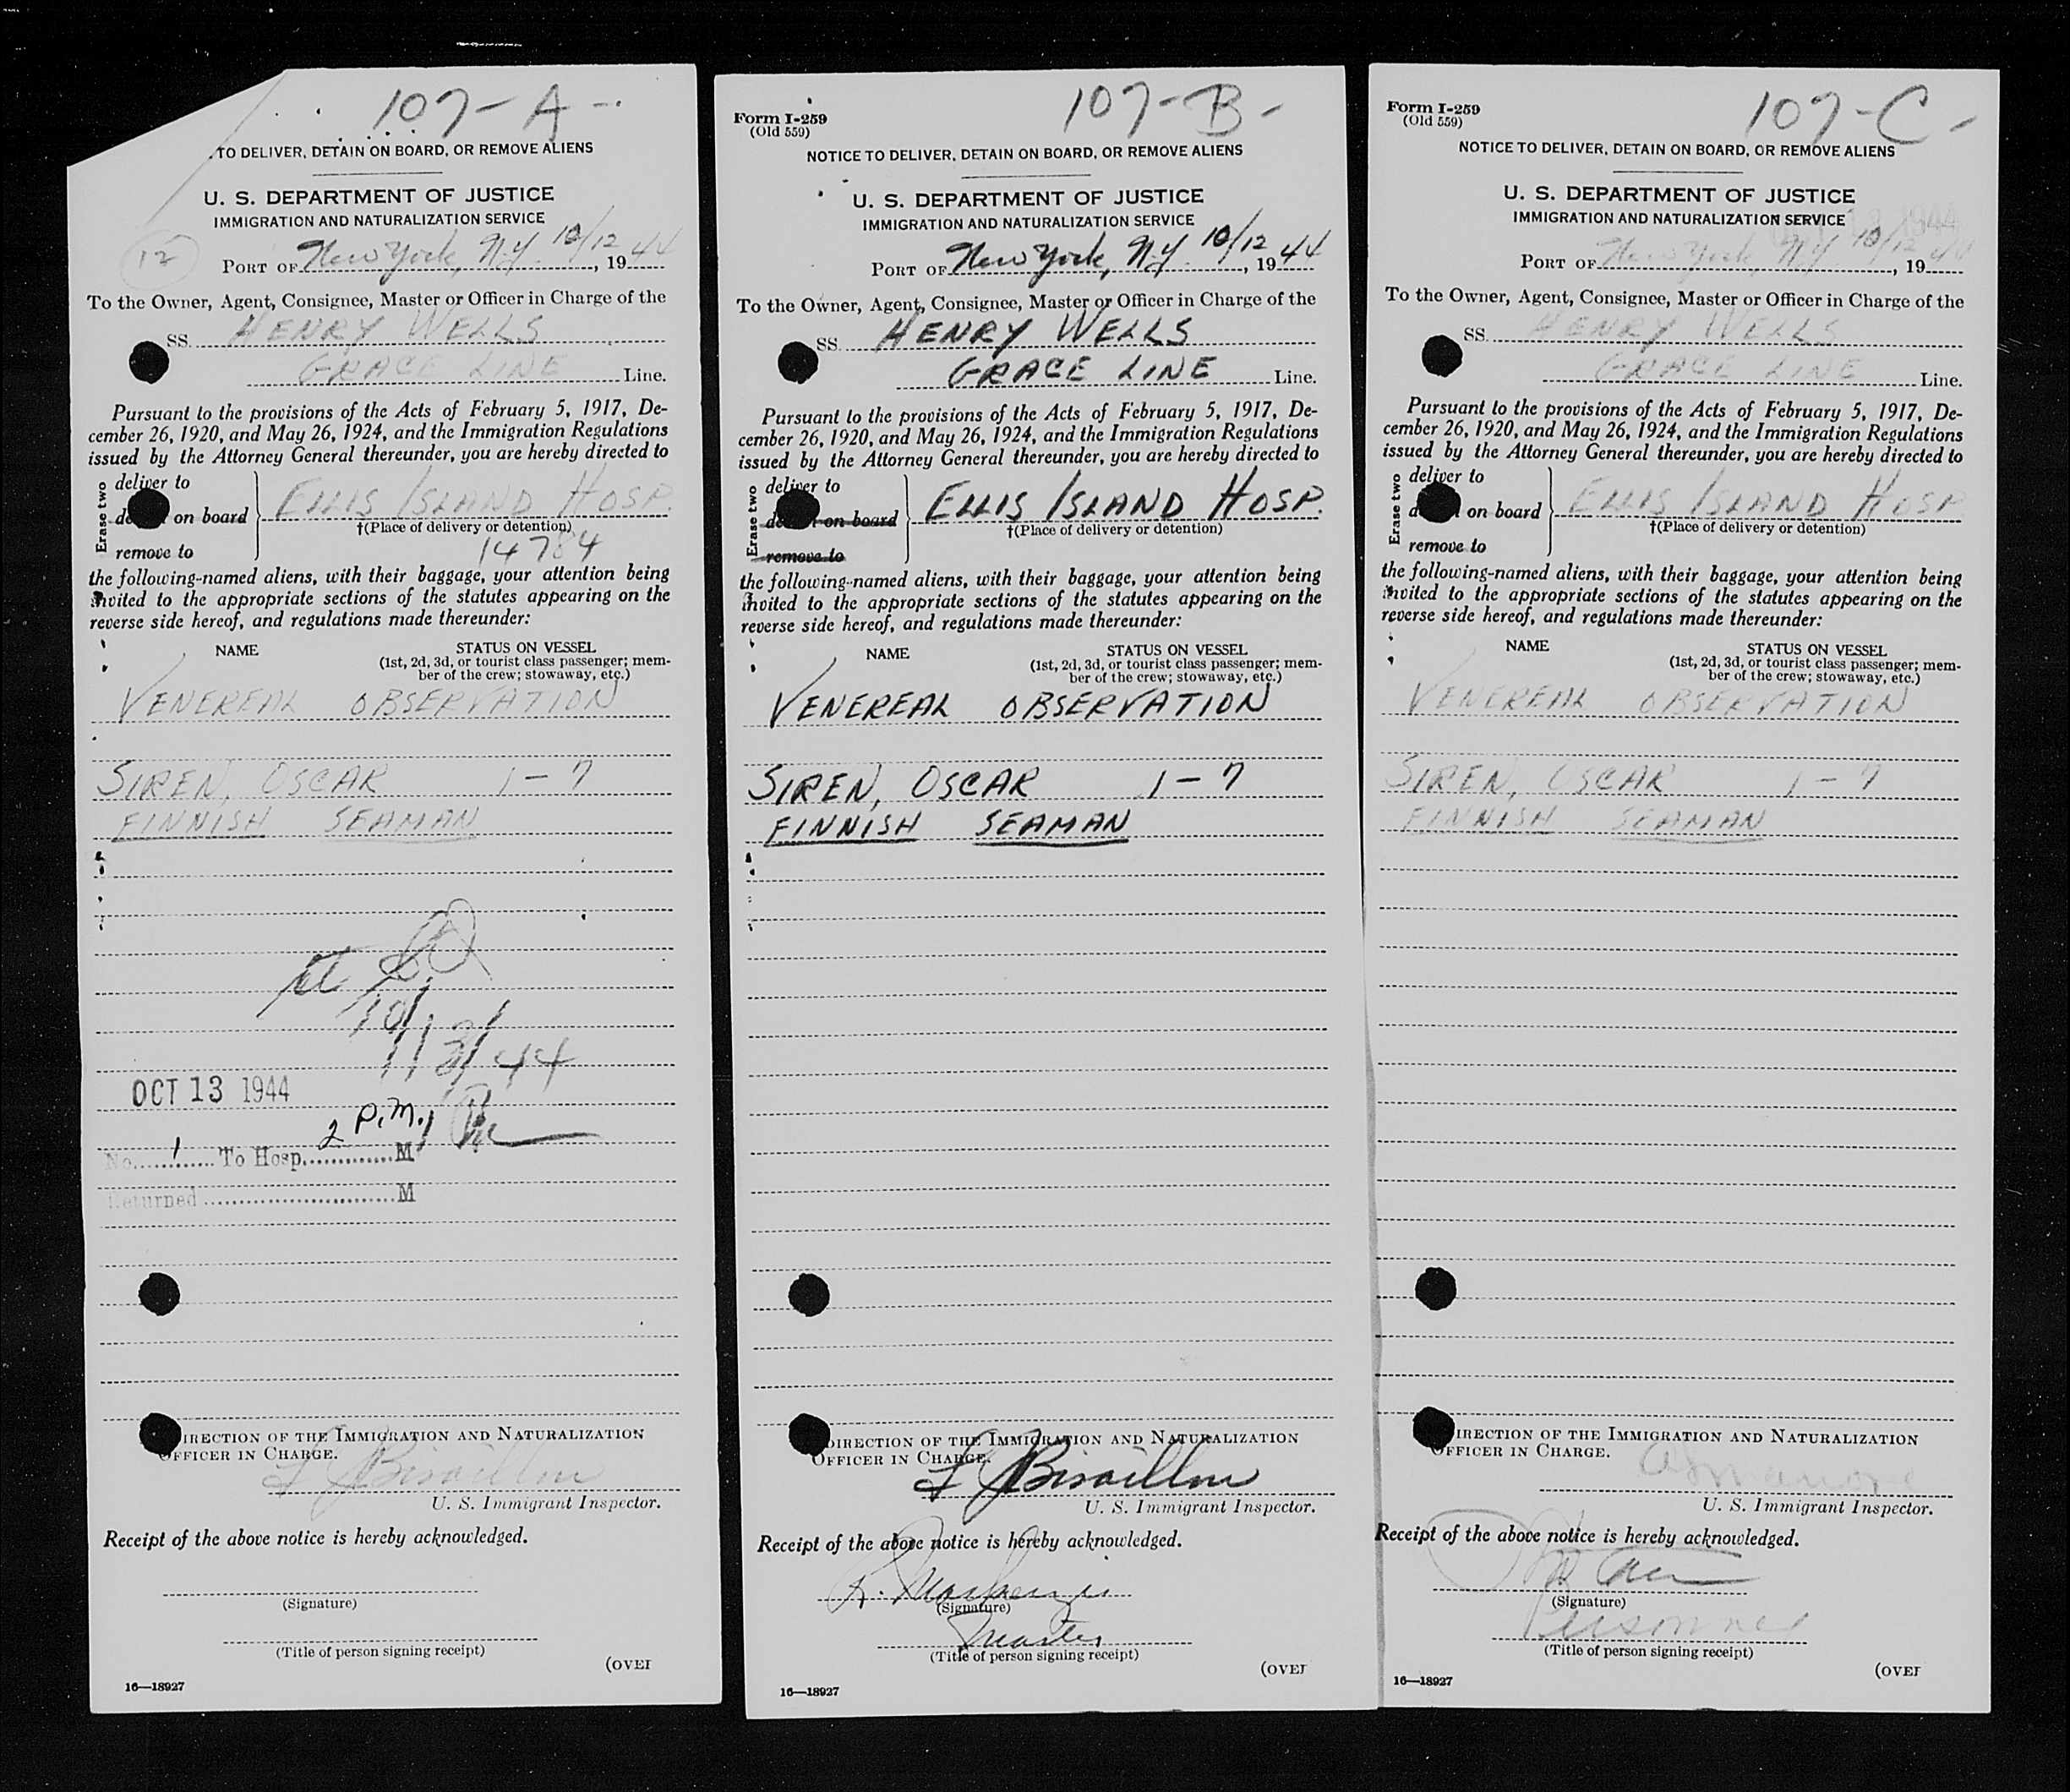 107-A-
TO DELIVER, DETAIN ON BOARD, OR REMOVE ALIENS
U. S. DEPARTMENT OF JUSTICE
IMMIGRATION AND NATURALIZATION SERVICE
12
PORT OF New York, N.Y. 10/12, 1944
To the Owner, Agent, Consignee, Master or Officer in Charge of the
SS. HENRY WELLS
GRACE LINE Line.
Pursuant to the provisions of the Acts of February 5, 1917, De-
cember 26, 1920, and May 26, 1924, and the Immigration Regulations
issued by the Attorney General thereunder, you are hereby directed to
Erase two
deliver to
on board ELLIS ISLAND HOSP.
†(Place of delivery or detention)
remove to 14784
the following-named aliens, with their baggage, your attention being
invited to the appropriate sections of the statutes appearing on the
reverse side hereof, and regulations made thereunder:
NAME STATUS ON VESSEL
(1st, 2d, 3d, or tourist class passenger; mem-
ber of the crew; stowaway, etc.)
VENEREAL OBSERVATION
SIREN, OSCAR 1-7
FINNISH SEAMAN
10/
13/44
OCT 13 1944
2 P.M.
No. 1 To Hosp. M
Returned M
DIRECTION OF THE IMMIGRATION AND NATURALIZATION
OFFICER IN CHARGE.
L J Bisaillon
U. S. Immigrant Inspector.
Receipt of the above notice is hereby acknowledged.
(Signature)
(Title of person signing receipt)
(OVER
16—18927
107-B-
Form I-259
(Old 559)
NOTICE TO DELIVER, DETAIN ON BOARD, OR REMOVE ALIENS
U. S. DEPARTMENT OF JUSTICE
IMMIGRATION AND NATURALIZATION SERVICE
PORT OF New York, N.Y. 10/12, 1944
To the Owner, Agent, Consignee, Master or Officer in Charge of the
SS. HENRY WELLS
GRACE LINE Line.
Pursuant to the provisions of the Acts of February 5, 1917, De-
cember 26, 1920, and May 26, 1924, and the Immigration Regulations
issued by the Attorney General thereunder, you are hereby directed to
Erase two
deliver to
on board ELLIS ISLAND HOSP.
†(Place of delivery or detention)
remove to
the following-named aliens, with their baggage, your attention being
invited to the appropriate sections of the statutes appearing on the
reverse side hereof, and regulations made thereunder:
NAME STATUS ON VESSEL
(1st, 2d, 3d, or tourist class passenger; mem-
ber of the crew; stowaway, etc.)
VENEREAL OBSERVATION
SIREN, OSCAR 1-7
FINNISH SEAMAN
DIRECTION OF THE IMMIGRATION AND NATURALIZATION
OFFICER IN CHARGE.
L J Bisaillon
U. S. Immigrant Inspector.
Receipt of the above notice is hereby acknowledged.
R. Mackenzie
(Signature)
Master
(Title of person signing receipt)
(OVER
16—18927
107-C-
Form I-259
(Old 559)
NOTICE TO DELIVER, DETAIN ON BOARD, OR REMOVE ALIENS
U. S. DEPARTMENT OF JUSTICE
IMMIGRATION AND NATURALIZATION SERVICE
1944
PORT OF New York, N.Y. 10/12, 1944
To the Owner, Agent, Consignee, Master or Officer in Charge of the
SS. HENRY WELLS
GRACE LINE Line.
Pursuant to the provisions of the Acts of February 5, 1917, De-
cember 26, 1920, and May 26, 1924, and the Immigration Regulations
issued by the Attorney General thereunder, you are hereby directed to
Erase two
deliver to
on board ELLIS ISLAND HOSP
†(Place of delivery or detention)
remove to
the following-named aliens, with their baggage, your attention being
invited to the appropriate sections of the statutes appearing on the
reverse side hereof, and regulations made thereunder:
NAME STATUS ON VESSEL
(1st, 2d, 3d, or tourist class passenger; mem-
ber of the crew; stowaway, etc.)
VENEREAL OBSERVATION
SIREN, OSCAR 1-7
FINNISH SEAMAN
DIRECTION OF THE IMMIGRATION AND NATURALIZATION
OFFICER IN CHARGE.
U. S. Immigrant Inspector.
Receipt of the above notice is hereby acknowledged.
(Signature)
Personnel
(Title of person signing receipt)
(OVER
16—18927